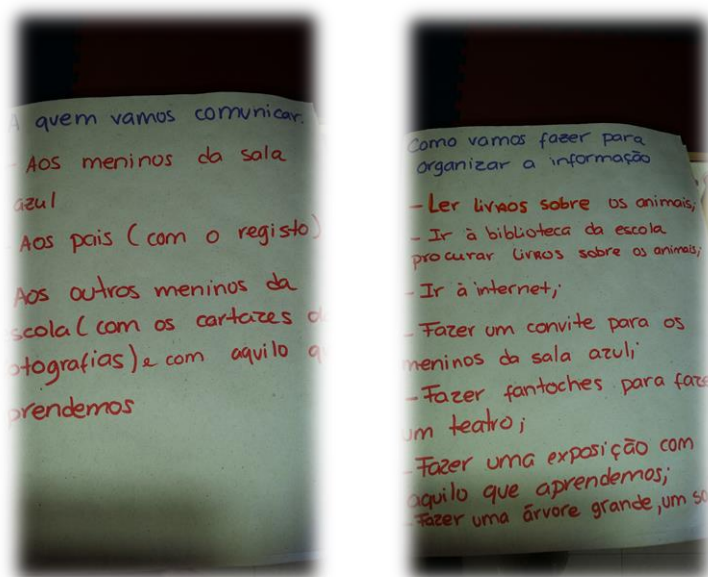 A quem vamos comunicar.
- Aos meninos da sala
azul
- Aos pais (com o registo)
Aos outros meninos da
scola (com os cartazes d
otografias) e com aquilo q
prendemos
Como vamos fazer para
organizar a informação
- Ler livros sobre os animais;
- Ir à biblioteca da escola
procurar livros sobre os animais;
- Ir à internet;
- Fazer um convite para os
meninos da sala azul;
- Fazer fantoches para faze
um teatro;
- Fazer uma exposição com
aquilo que aprendemos;
- Fazer uma árvore grande, um so